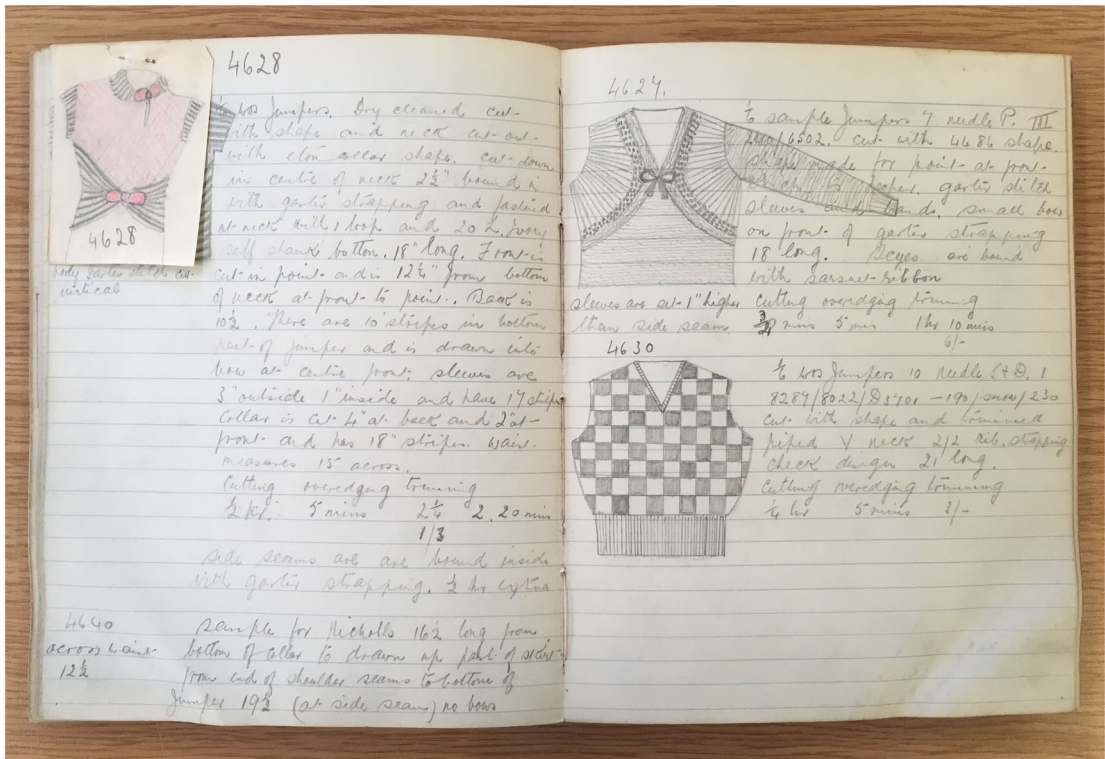 4628
4628
wos Jumpers. Dry cleaned cut
with shape and neck cut out
with eton collar shape. cut down
in centre of neck 2½" bound in
with garter strapping and fastend
at neck with 1 loop and 20 L. ivory
self shank button. 18" long. Front is
body garter stitch cut
vertical
cut in point and is 12½" from bottom
of neck at front to point. Back is
10½. There are 10 stripes in bottom
part of jumper and is drawn into
bow at centre front. sleeves are
3" outside 1" inside and have 17 stripes
Collar is cut 4" at back and 2" at
front and has 18" stripes. waist
measures 15 across.
Cutting overedging trimming
½ hr. 5 mins 2¼ 2. 20 mins
1/3
side seams are are bound inside
with garter strapping. ½ hr extra
4640
across waist
12½
sample for Nicholls 16½ long from
bottom of collar to drawn up part of skirt
from end of shoulder seams to bottom of
Jumper 19½ (at side seams) no bows
4627.
sample Jumpers 7 needle P. III
6502. cut with 4486 shape.
shape made for point at front
garter stitch
sleeves and bands, small bow
on front of garter strapping
18 long. Deyes are bound
with sarsnet ribbon
sleeves are set 1" higher
than side seams
cutting overedging trimming
mins 5 mins 1 hr 10 mins
6/-
4630
wos Jumpers 10 needle S+D. 1
8287/8022/D3701 – 190/snow/230
cut with shape and trimmed
piped V neck 2/2 rib. strapping
check design 21 long.
Cutting overedging trimming
¼ hr 5 mins 3/-